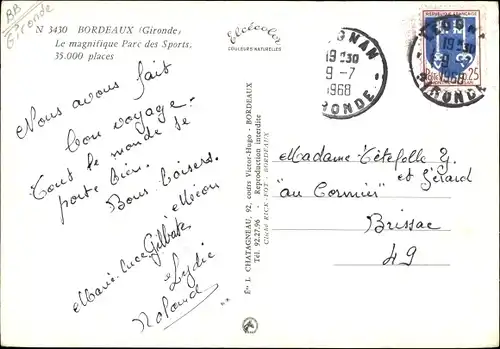 BB
Gironde
N 3430 BORDEAUX (Gironde)
Le magnifique Parc des Sports,
35.000 places
Nous avons fait
bon voyage.
Tout le monde se
porte bien.
Bons baisers.
Marie-Luce Gilbert
Lydie
Roland
Elcécolor
COULEURS NATURELLES
Éts L. CHATAGNEAU, 92, cours Victor-Hugo - BORDEAUX
Tél. 92.27-96 - Reproduction interdite
19H30
9-7
1968
RONDE
REPUBLIQUE FRANÇAISE
0,25
19H30
9
1968
GIRONDE
Madame Têtefolle G.
et Gérard
"au Cormier"
Brissac
49